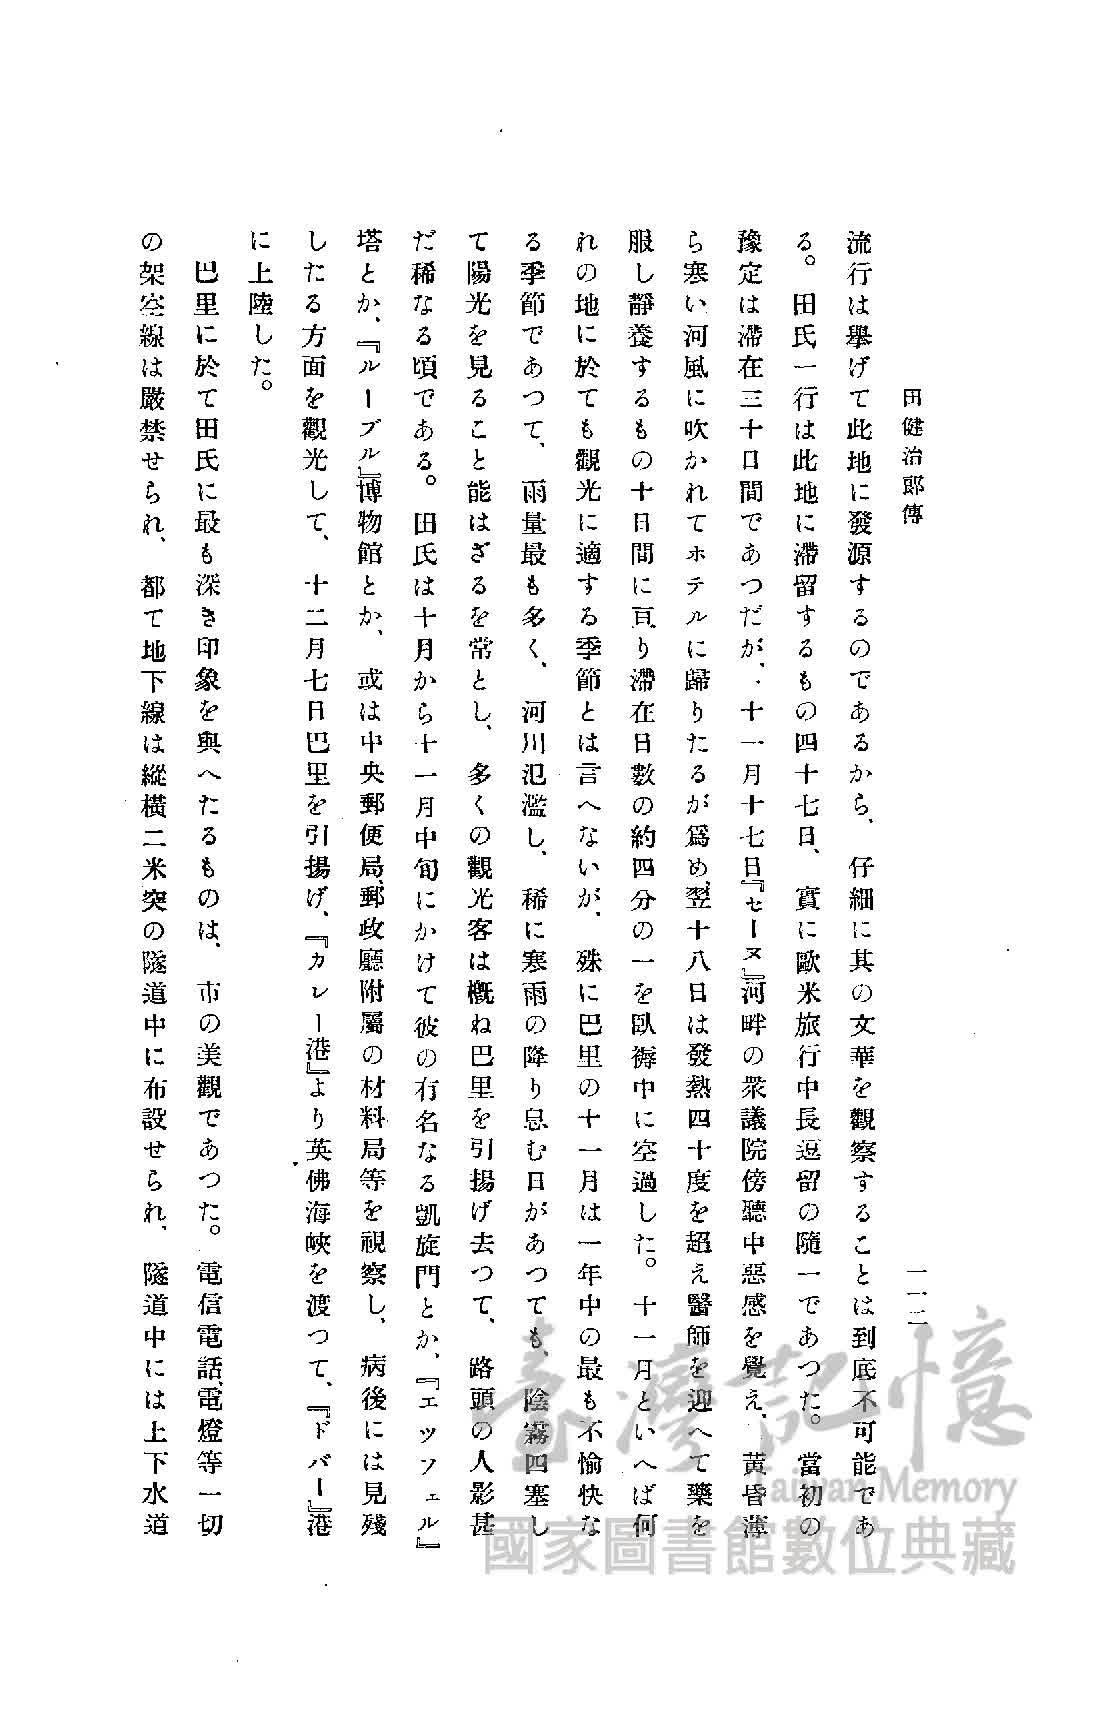 田健治郎傳
一一二
流行は擧げて此地に發源するのであるから、仔細に其の文華を觀察することは到底不可能であ
る。田氏一行は此地に滯留するもの四十七日、實に歐米旅行中長逗留の隨一であつた。當初の
豫定は滯在三十日間であつだが、十一月十七日『セーヌ』河畔の衆議院傍聽中惡感を覺え、黄昏薄
ら寒い河風に吹かれてホテルに歸りたるが爲め、翌十八日は發熱四十度を超え醫師を迎へて藥を
服し靜養するもの十日間に亘り滯在日數の約四分の一を臥褥中に空過した。十一月といへば何
れの地に於ても觀光に適する季節とは言へないが、殊に巴里の十一月は一年中の最も不愉快な
る季節であつて、雨量最も多く、河川氾濫し、稀に寒雨の降り息む日があつても、陰霧四塞し
て陽光を見ること能はざるを常とし、多くの觀光客は概ね巴里を引揚げ去つて、路頭の人影甚
だ稀なる頃である。田氏は十月から十一月中旬にかけて彼の有名なる凱旋門とか、『エッフェル』
塔とか、『ルーブル』博物館とか、或は中央郵便局、郵政廳附屬の材料局等を視察し、病後には見殘
したる方面を觀光して、十二月七日巴里を引揚げ、『カレー港』より英佛海峽を渡つて、『ドバー』港
に上陸した。
巴里に於て田氏に最も深き印象を與へたるものは、市の美觀であつた。電信電話、電燈等一切
の架空線は嚴禁せられ、都て地下線は縱橫二米突の隧道中に布設せられ、隧道中には上下水道
臺灣記憶
Taiwan Memory
國家圖書館數位典藏